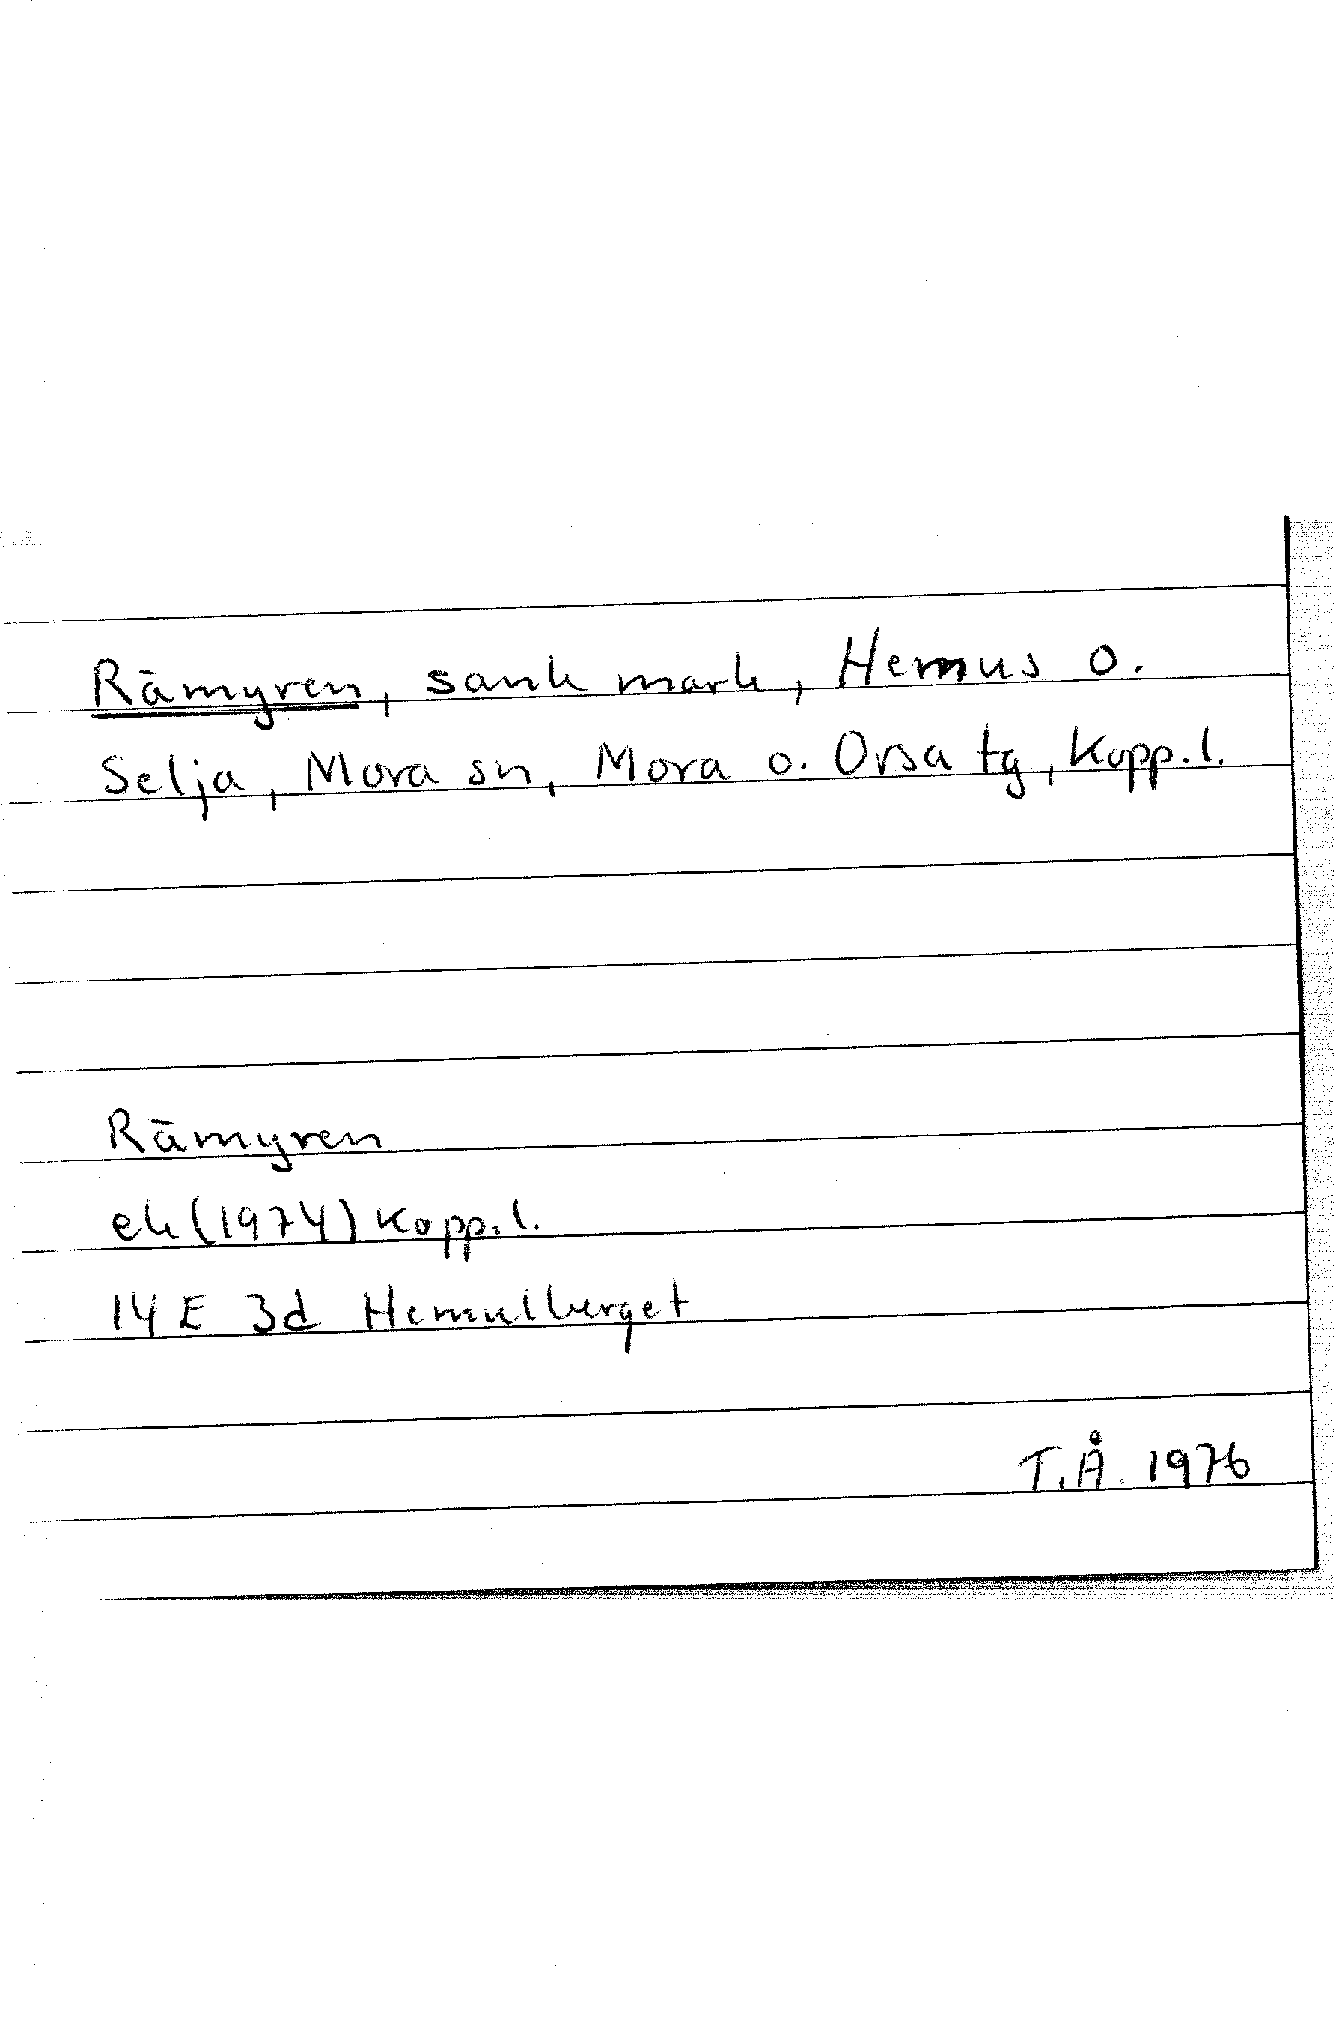 Rämyren, sank mark, Hemus o.
Selja, Mora sn, Mora o. Orsa tg, Kopp.l.
Rämyren
ek (1974) Kopp.l.
14 E 3d Hemulberget
T.Å. 1976